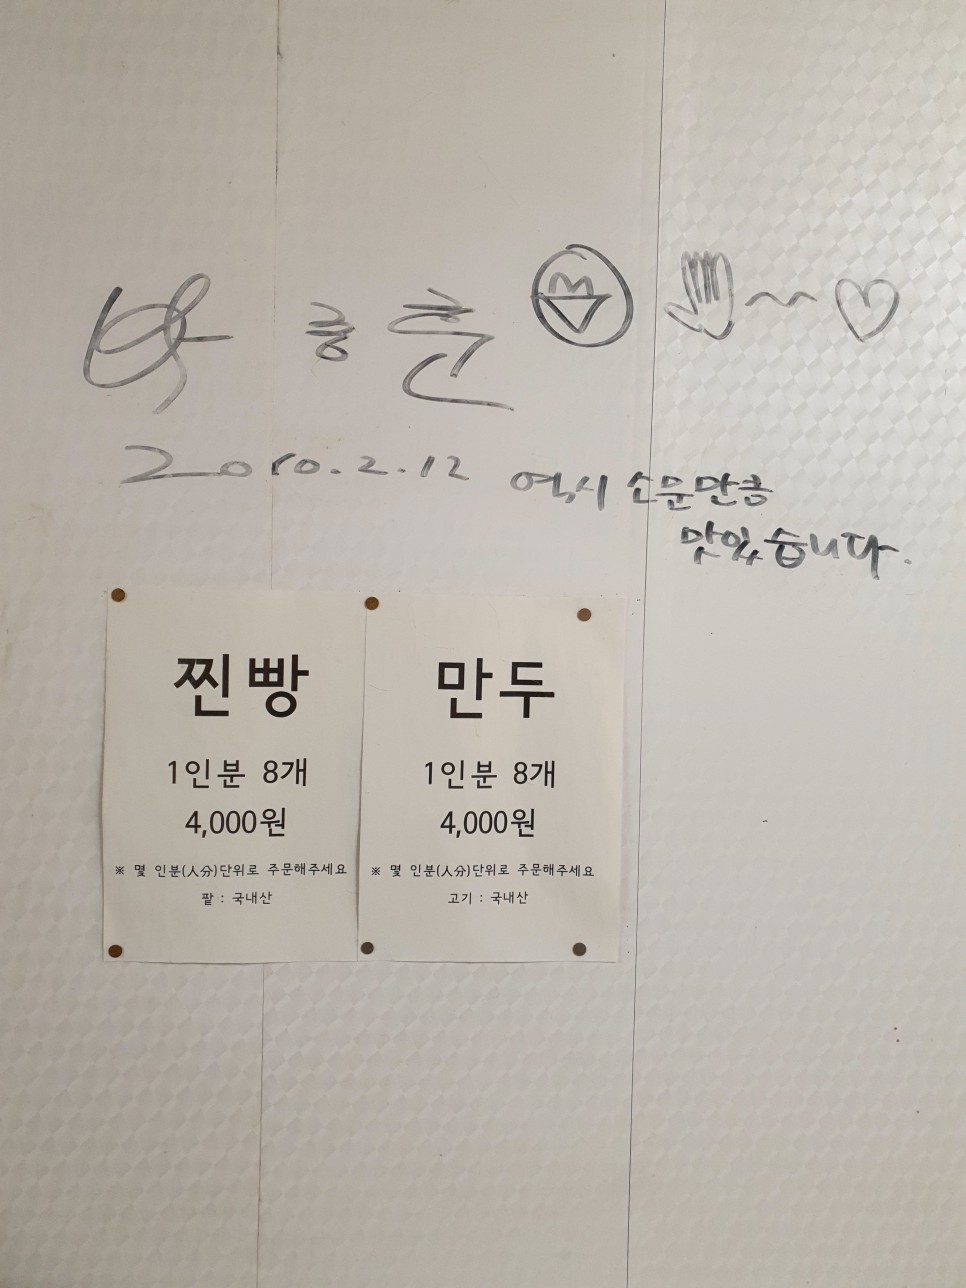 박흥준
2010.2.12
역시 소문만큼
맛있습니다.
찐빵
1인분 8개
4,000원
※ 몇 인분(人分)단위로 주문해주세요
팥 : 국내산
만두
1인분 8개
4,000원
※ 몇 인분(人分)단위로 주문해주세요
고기 : 국내산